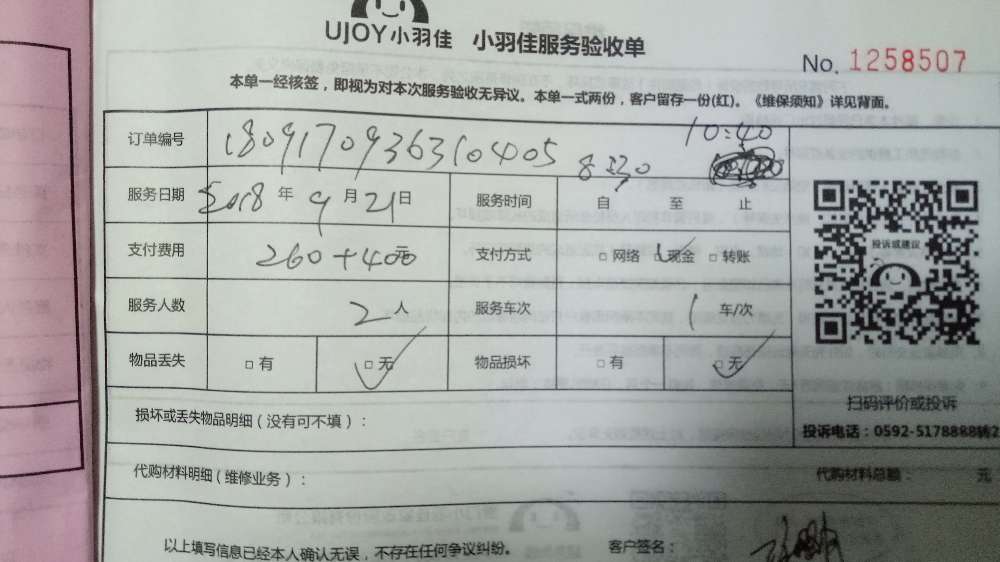 UJOY小羽佳 小羽佳服务验收单
No. 1258507
本单一经核签，即视为对本次服务验收无异议。本单一式两份，客户留存一份(红)。《维保须知》详见背面。
订单编号 180917093631040５
服务日期 2018 年 9 月 21 日 服务时间 自 8:30 至 10:40 止
支付费用 260+400 元 支付方式 □网络 ☑现金 □转账
服务人数 2 人 服务车次 1 车/次
物品丢失 □有 ☑无 物品损坏 □有 ☑无
投诉或建议
扫码评价或投诉
投诉电话：0592-5178888转2
损坏或丢失物品明细（没有可不填）：
代购材料明细（维修业务）： 代购材料总额： 元
以上填写信息已经本人确认无误，不存在任何争议纠纷。 客户签名：